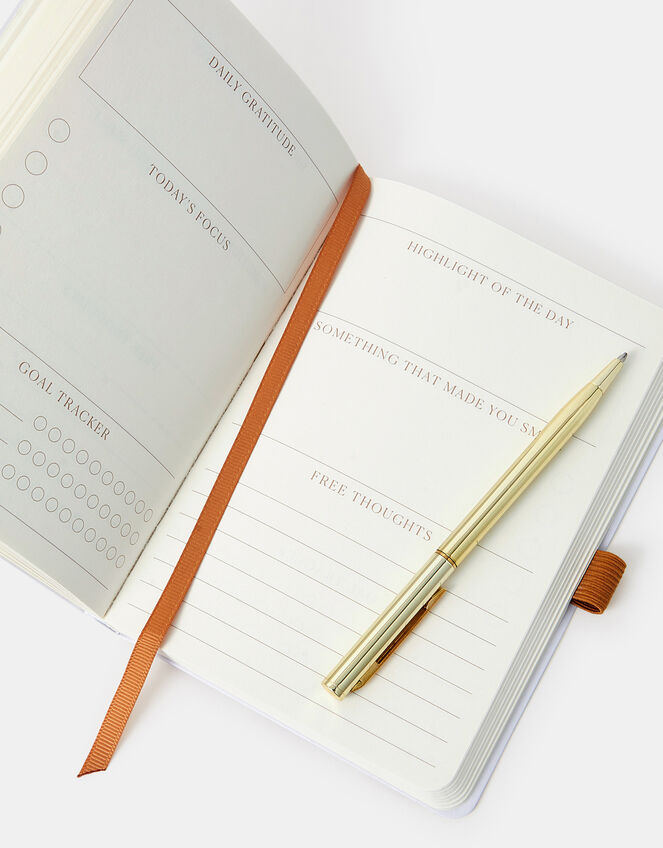 DAILY GRATITUDE
TODAY'S FOCUS
GOAL TRACKER
HIGHLIGHT OF THE DAY
SOMETHING THAT MADE YOU
FREE THOUGHTS